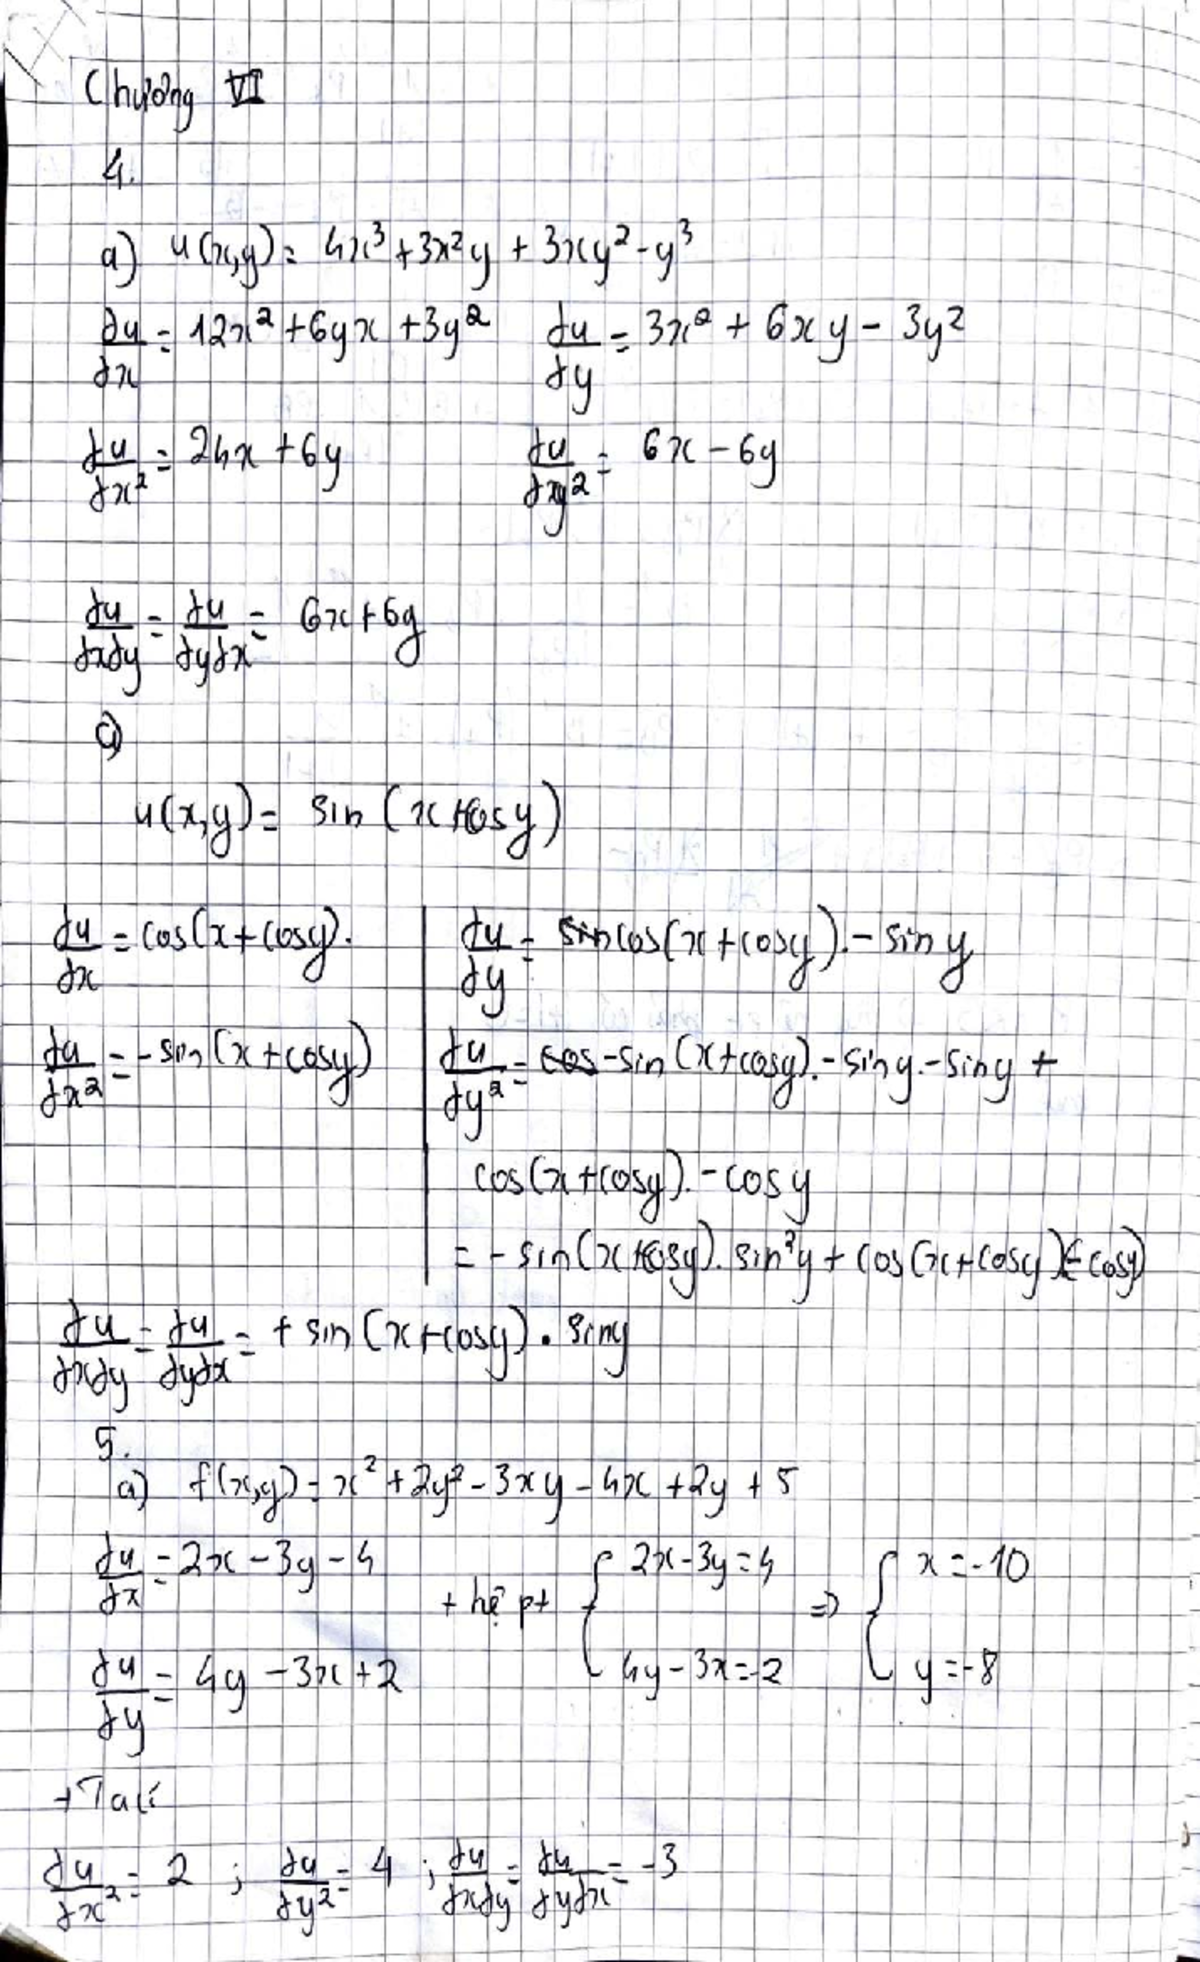 Chương VI
4.
a) u(x,y) = 4x³ + 3x²y + 3xy² - y³
∂u/∂x = 12x² + 6yx + 3y² ∂u/∂y = 3x² + 6xy - 3y²
∂u/∂x² = 24x + 6y ∂u/∂y² = 6x - 6y
∂u/∂x∂y = ∂u/∂y∂x = 6x + 6y
c)
u(x,y) = sin (x + cosy)
∂u/∂x = cos(x + cosy). ∂u/∂y = cos(x + cosy).-sin y
∂u/∂x² = -sin(x + cosy) ∂u/∂y² = -sin(x + cosy).-siny.-siny +
cos(x + cosy).-cosy
= -sin(x + cosy).sin²y + cos(x + cosy)(-cosy)
∂u/∂x∂y = ∂u/∂y∂x = + sin(x + cosy) . siny
5.
a) f(x,y) = x² + 2y² - 3xy - 4x + 2y + 5
∂u/∂x = 2x - 3y - 4 2x - 3y = 4 x = -10
+ hệ pt { ⇒ {
∂u/∂y = 4y - 3x + 2 4y - 3x = -2 y = -8
+ Ta có
∂u/∂x² = 2 ; ∂u/∂y² = 4 ; ∂u/∂x∂y = ∂u/∂y∂x = -3